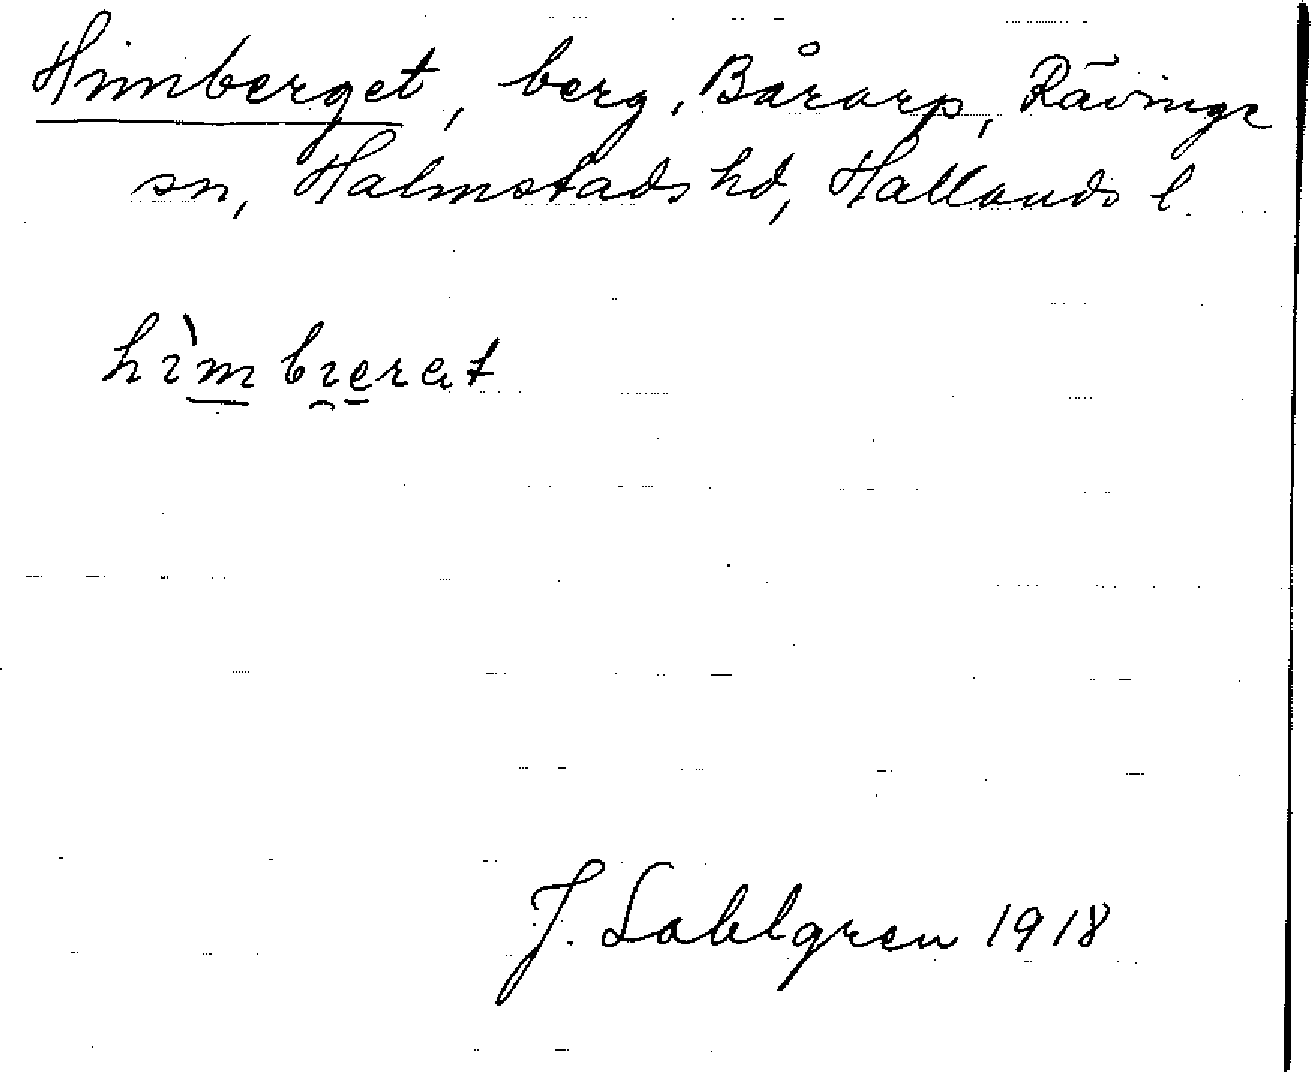 Himberget, berg, Bårarp, Rävinge
sn, Halmstads hd, Hallands l.
hìmbi̯erət
J. Sahlgren 1918